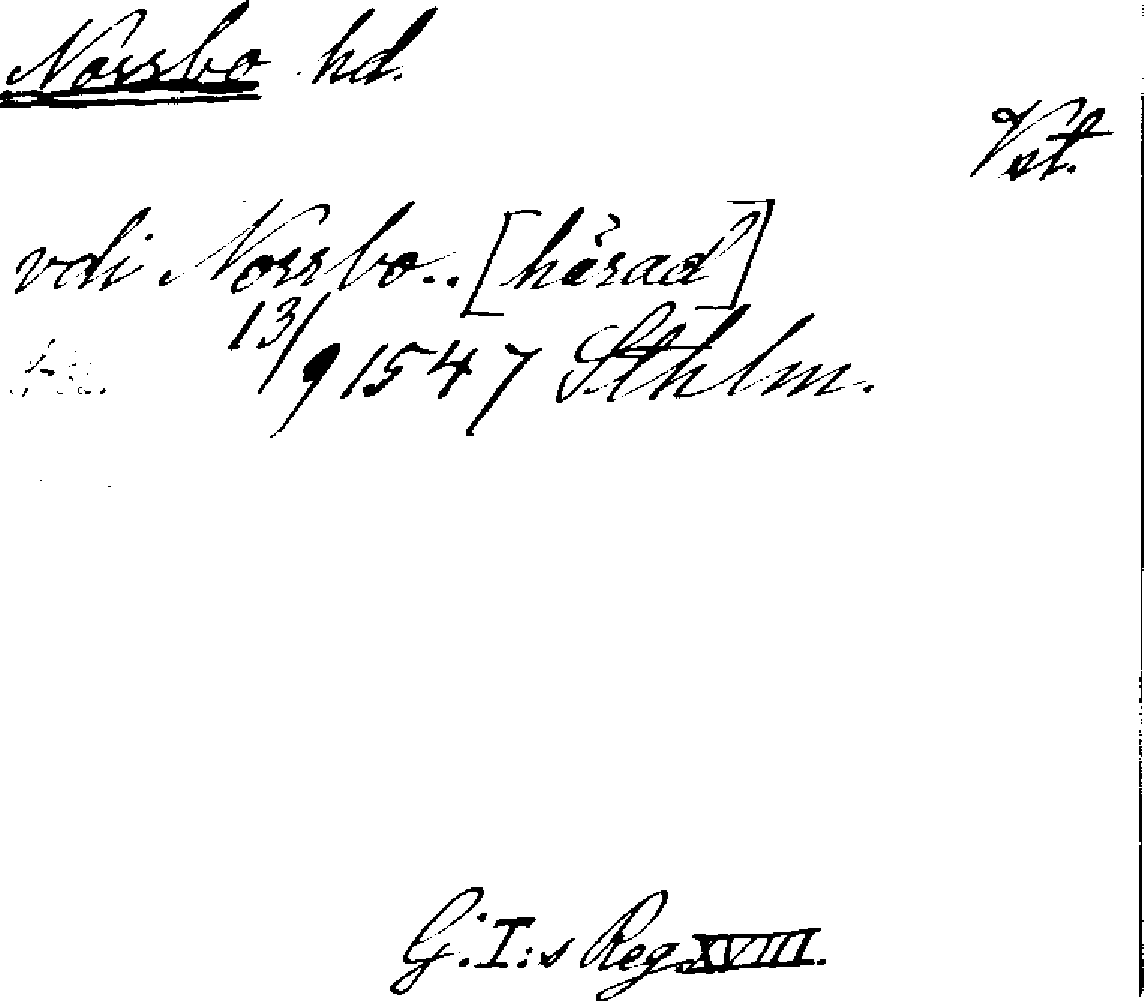 Norrbo hd.
Vst.
vdi Norrbo.. [härad]
13/9 1547 Sthlm.
G.I:s Reg. XVIII.